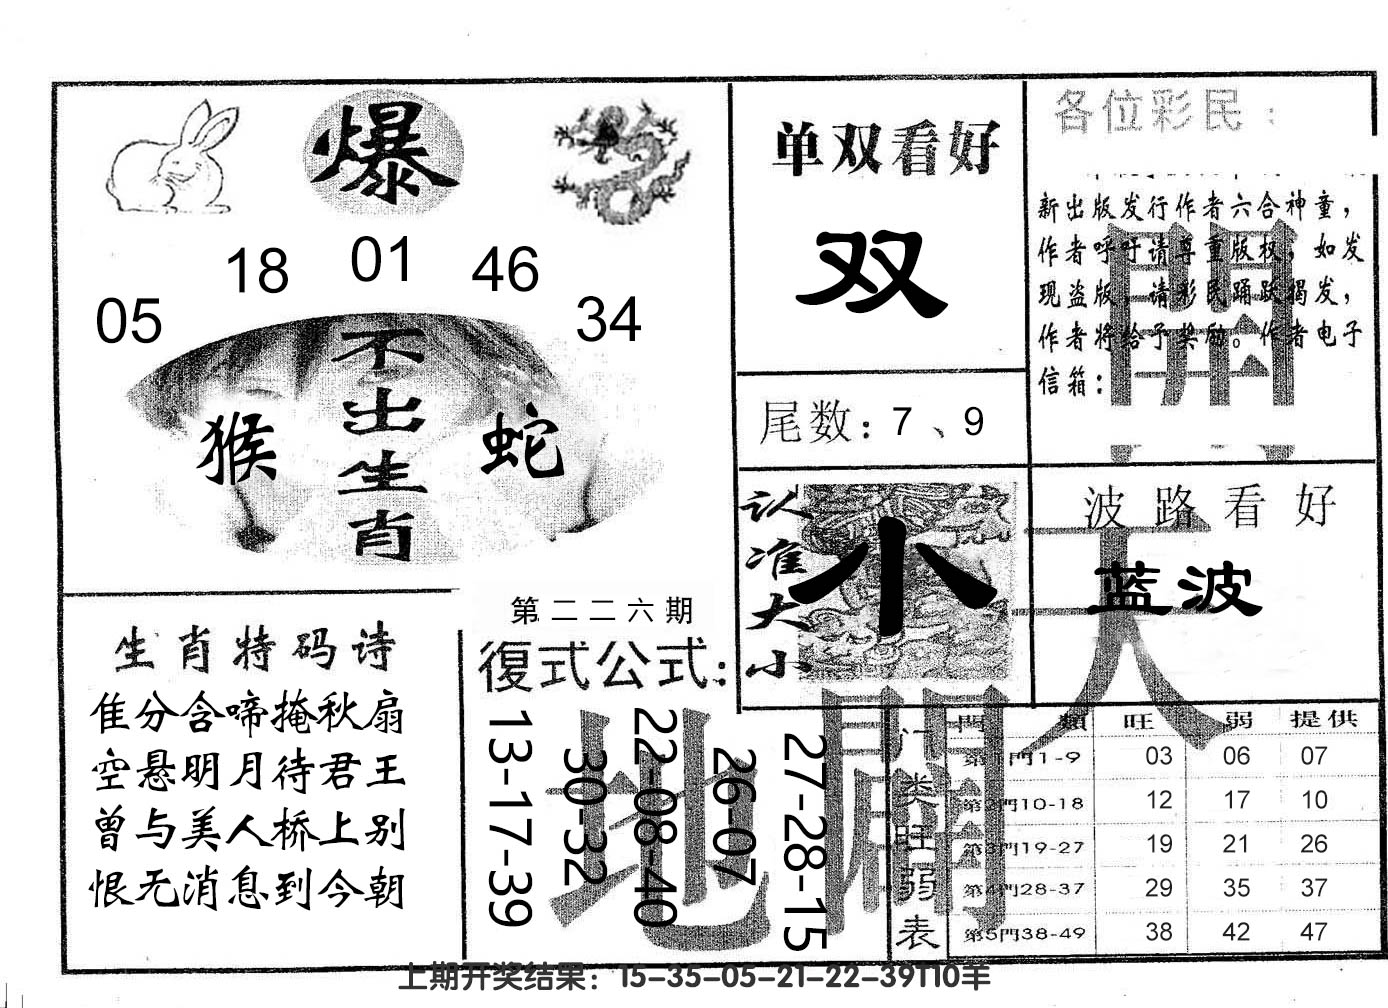 爆
05 18 01 46 34
不出生肖
猴 蛇
单双看好
双
尾数：7、9
各位彩民：
新出版发行作者六合神童，
作者呼吁请尊重版权，如发
现盗版，请彩民踊跃揭发，
作者将给予奖励。作者电子
信箱：
认准大小
小
波路看好
蓝波
天
開
地
闢
生肖特码诗
隹分含啼掩秋扇
空悬明月待君王
曾与美人桥上别
恨无消息到今朝
第二二六期
復式公式：
13-17-39
30-32
22-08-40
26-07
27-28-15
门类旺弱表
門類 旺 弱 提供
第1門1-9 03 06 07
第2門10-18 12 17 10
第3門19-27 19 21 26
第4門28-37 29 35 37
第5門38-49 38 42 47
上期开奖结果：15-35-05-21-22-39T10羊